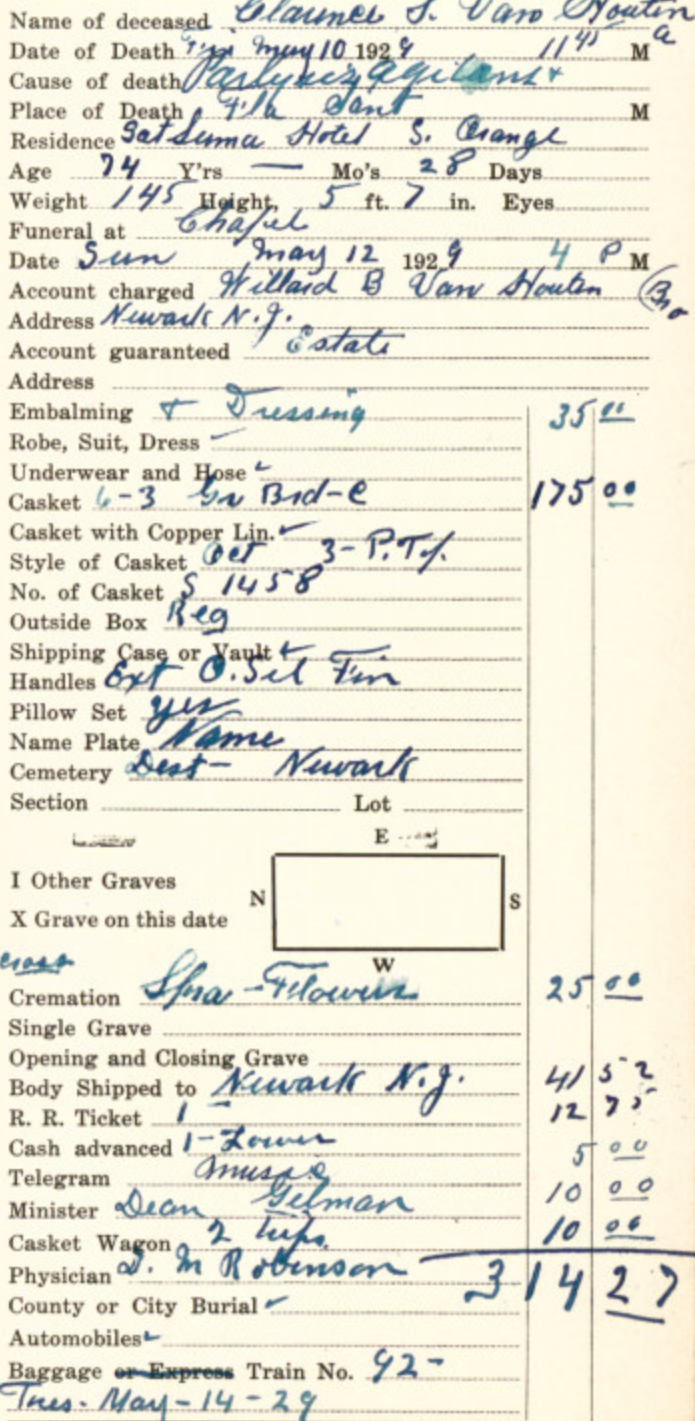 Name of deceased Clarence S. Van Houten
Date of Death Fri May 10 1929 11 45 a M
Cause of death Paralysis Agitans
Place of Death Fla Sant M
Residence Satsuma Hotel S. Orange
Age 74 Y'rs — Mo's 28 Days
Weight 145 Height, 5 ft. 7 in. Eyes
Funeral at Chapel
Date Sun May 12 1929 4 P M
Account charged Willard B Van Houten (Bro
Address Newark N.J.
Account guaranteed Estate
Address
Embalming & Dressing 35 00
Robe, Suit, Dress
Underwear and Hose
Casket 6-3 Gr Brd-C 175 00
Casket with Copper Lin.
Style of Casket Oct 3-P. Top.
No. of Casket S 1458
Outside Box Reg
Shipping Case or Vault
Handles Ext O. Sil Fin
Pillow Set yes
Name Plate Name
Cemetery Dest- Newark
Section Lot
E
I Other Graves
N S
X Grave on this date
W
Cremation Spra-Flowers 25 00
Single Grave
Opening and Closing Grave
Body Shipped to Newark N.J. 41 52
R. R. Ticket 1 - 12 75
Cash advanced 1-Lower
Telegram Music 5 00
Minister Dean Gilman 10 00
Casket Wagon 2 trips 10 00
Physician D. M Robinson 314 27
County or City Burial
Automobiles
Baggage or Express Train No. 92-
Tues. May-14-29